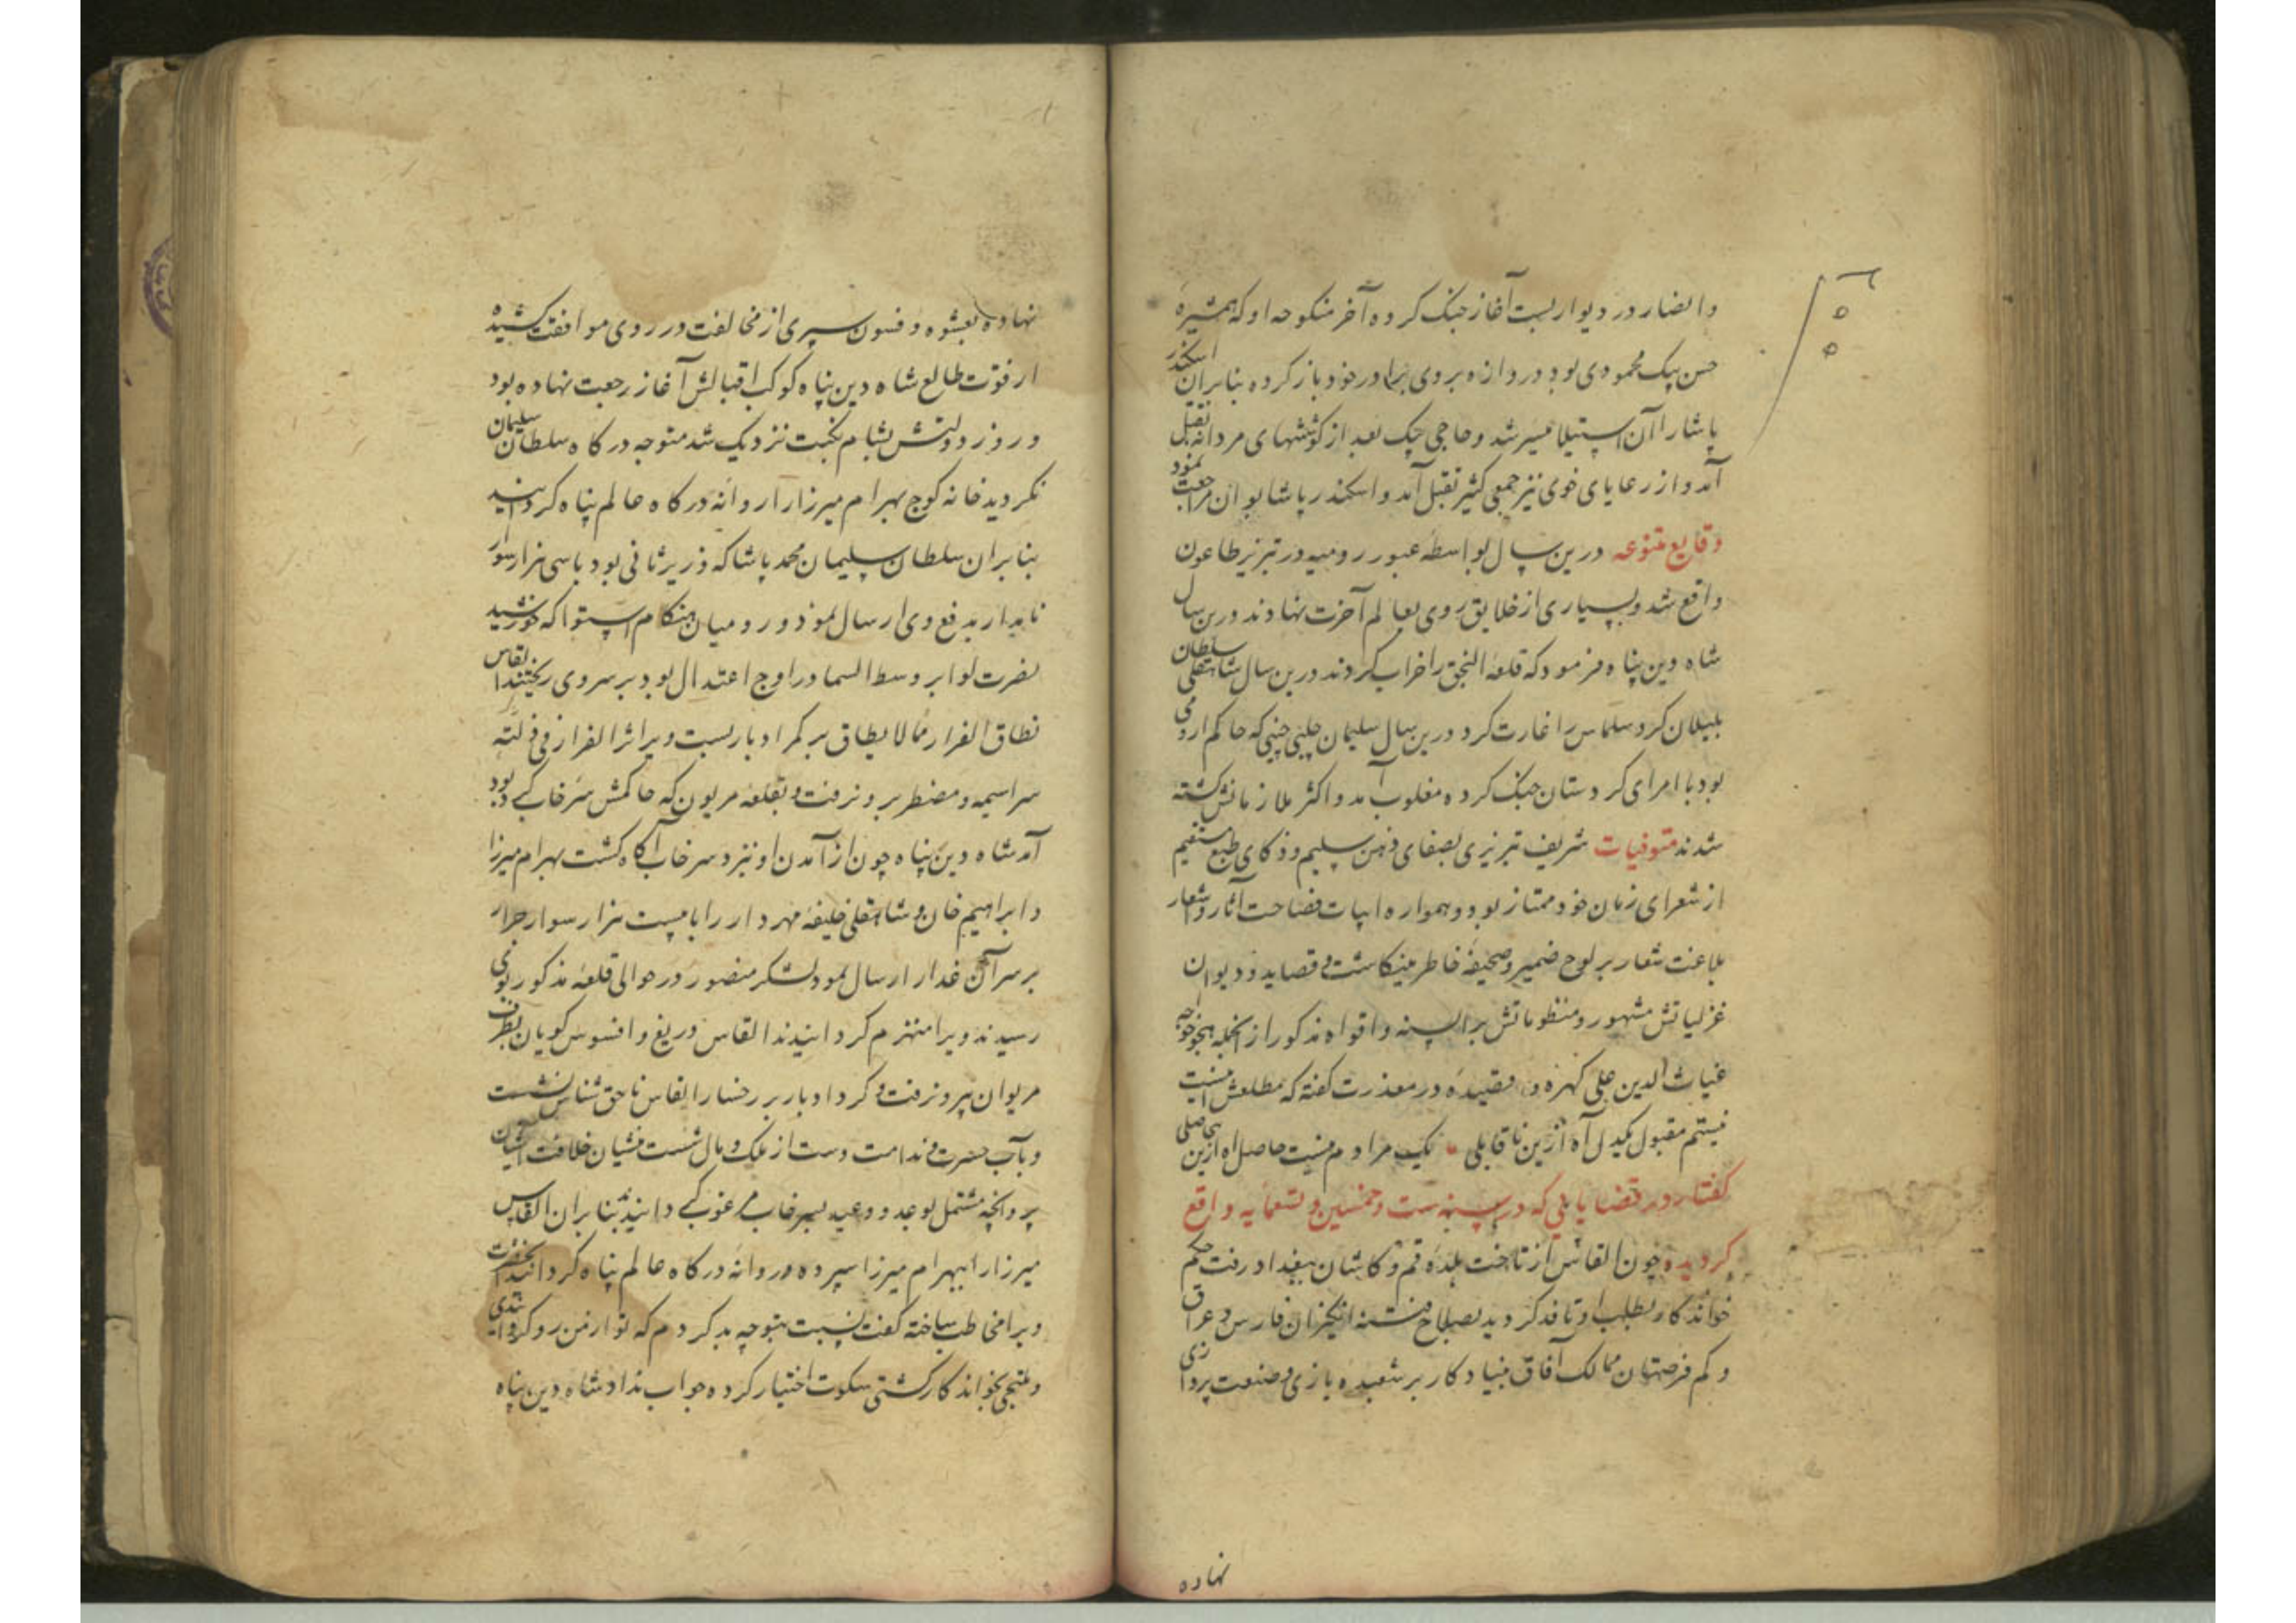 وانضار در دیوار بست آغاز جنک کرده آخر منکوحه او که همشیره
حسن بیک محمودی بود دروازه بروی برادر خود باز کرده بنابران اسکندر
پاشا را آن استیلا میسر شد و حاجی بیک بعد از کوششهای مردانه بقتل
آمد و از رعایای خوی نیز جمعی کثیر بقتل آمد و اسکندر پاشا بوان مراجعت نمود
وقایع متنوعه درین سال بواسطه عبور رومیه در تبریز طاعون
واقع شد و بسیاری از خلایق روی بعالم آخرت نهادند درین سال
شاه دین پناه فرمود که قلعه النجق را خراب کردند درین سال شاهقلی سلطان
بلیلان کرد سلماس را غارت کرد درین سال سلیمان چلبی که حاکم ارومی
بود با امرای کردستان جنک کرده مغلوب آمد و اکثر ملازمانش کشته
شدند متوفیات شریف تبریزی بصفای ذهن سلیم و ذکای طبع مستقیم
از شعرای زمان خود ممتاز بود و همواره ابیات فصاحت آثار و اشعار
بلاغت شعار بر لوح ضمیر و صحیفه خاطر مینکاشت و قصاید و دیوان
غزلیاتش مشهور و منظوماتش بر السنه و افواه مذکور از انجمله بهجو خواجه
غیاث الدین علی کهره و قصیده در معذرت کفته که مطلعش اینست
نیستم مقبول یکدل آه ازین ناقابلی یک مرادم نیست حاصل اه ازین بیحاصلی
کفتار در قضایایی که در سنه ست و خمسین و تسعمایه واقع
کردیده چون القاس از تاخت بلده قم و کاشان ببغداد رفت حکم
خواندکار بطلب او نافذ کردید بصلاح فتنه انکیزان فارس و عراق
و کم فرصتان ممالک آفاق بنیاد کار بر شعبده بازی و صنعت پردازی
نهاده
نهاده بعشوه و فسون سپری از مخالفت در روی موافقت کشیده
از قوت طالع شاه دین پناه کوکب اقبالش آغاز رجعت نهاده بود
و روز دولتش بشام نکبت نزدیک شد متوجه درکاه سلطان سلیمان
نکردید خانه کوچ بهرام میرزا را روانه درکاه عالم پناه کردانید
بنابران سلطان سلیمان محمد پاشا که وزیر ثانی بود با سی هزار سوار
نابدار بدفع وی ارسال نمود و رومیان هنکام استوا که خورشید
نصرت لوا بر وسط السما در اوج اعتدال بود بر سر وی ریختند القاس
نطاق الفرار مما لا یطاق بر کمر ادبار بست و بر اثر الفرار فی ذلته
سراسیمه و مضطر برون رفت و بقلعه مریوان که حاکمش سرخاب کرد بود
آمد شاه دین پناه چون از آمدن او نزد سرخاب آکاه کشت بهرام میرزا
و ابراهیم خان و شاهقلی خلیفه مهردار را با بیست هزار سوار جرار
بر سر آن غدار ارسال نمود لشکر منصور در حوالی قلعه مذکور بوی
رسیدند و برا منهزم کردانیدند القاس دریغ و افسوس کویان بطرف
مریوان بیرون رفت و کرد ادبار بر رخسار القاس ناحق شناس نشست
و بآب حسرت و ندامت دست از ملک و مال شست منشیان خلافت آشیان
پروانچه مشتمل بوعد و وعید بسرخاب مرغوب کردانید بنابران القاس
میرزا را ببهرام میرزا سپرده روانه درکاه عالم پناه کردانید آنحضرت
ویرا مخاطب ساخته کفت نسبت بتو چه بد کردم که تو از من رو کردان شدی
و ملتجی بخواندکار کشتی سکوت اختیار کرده جواب نداد شاه دین پناه